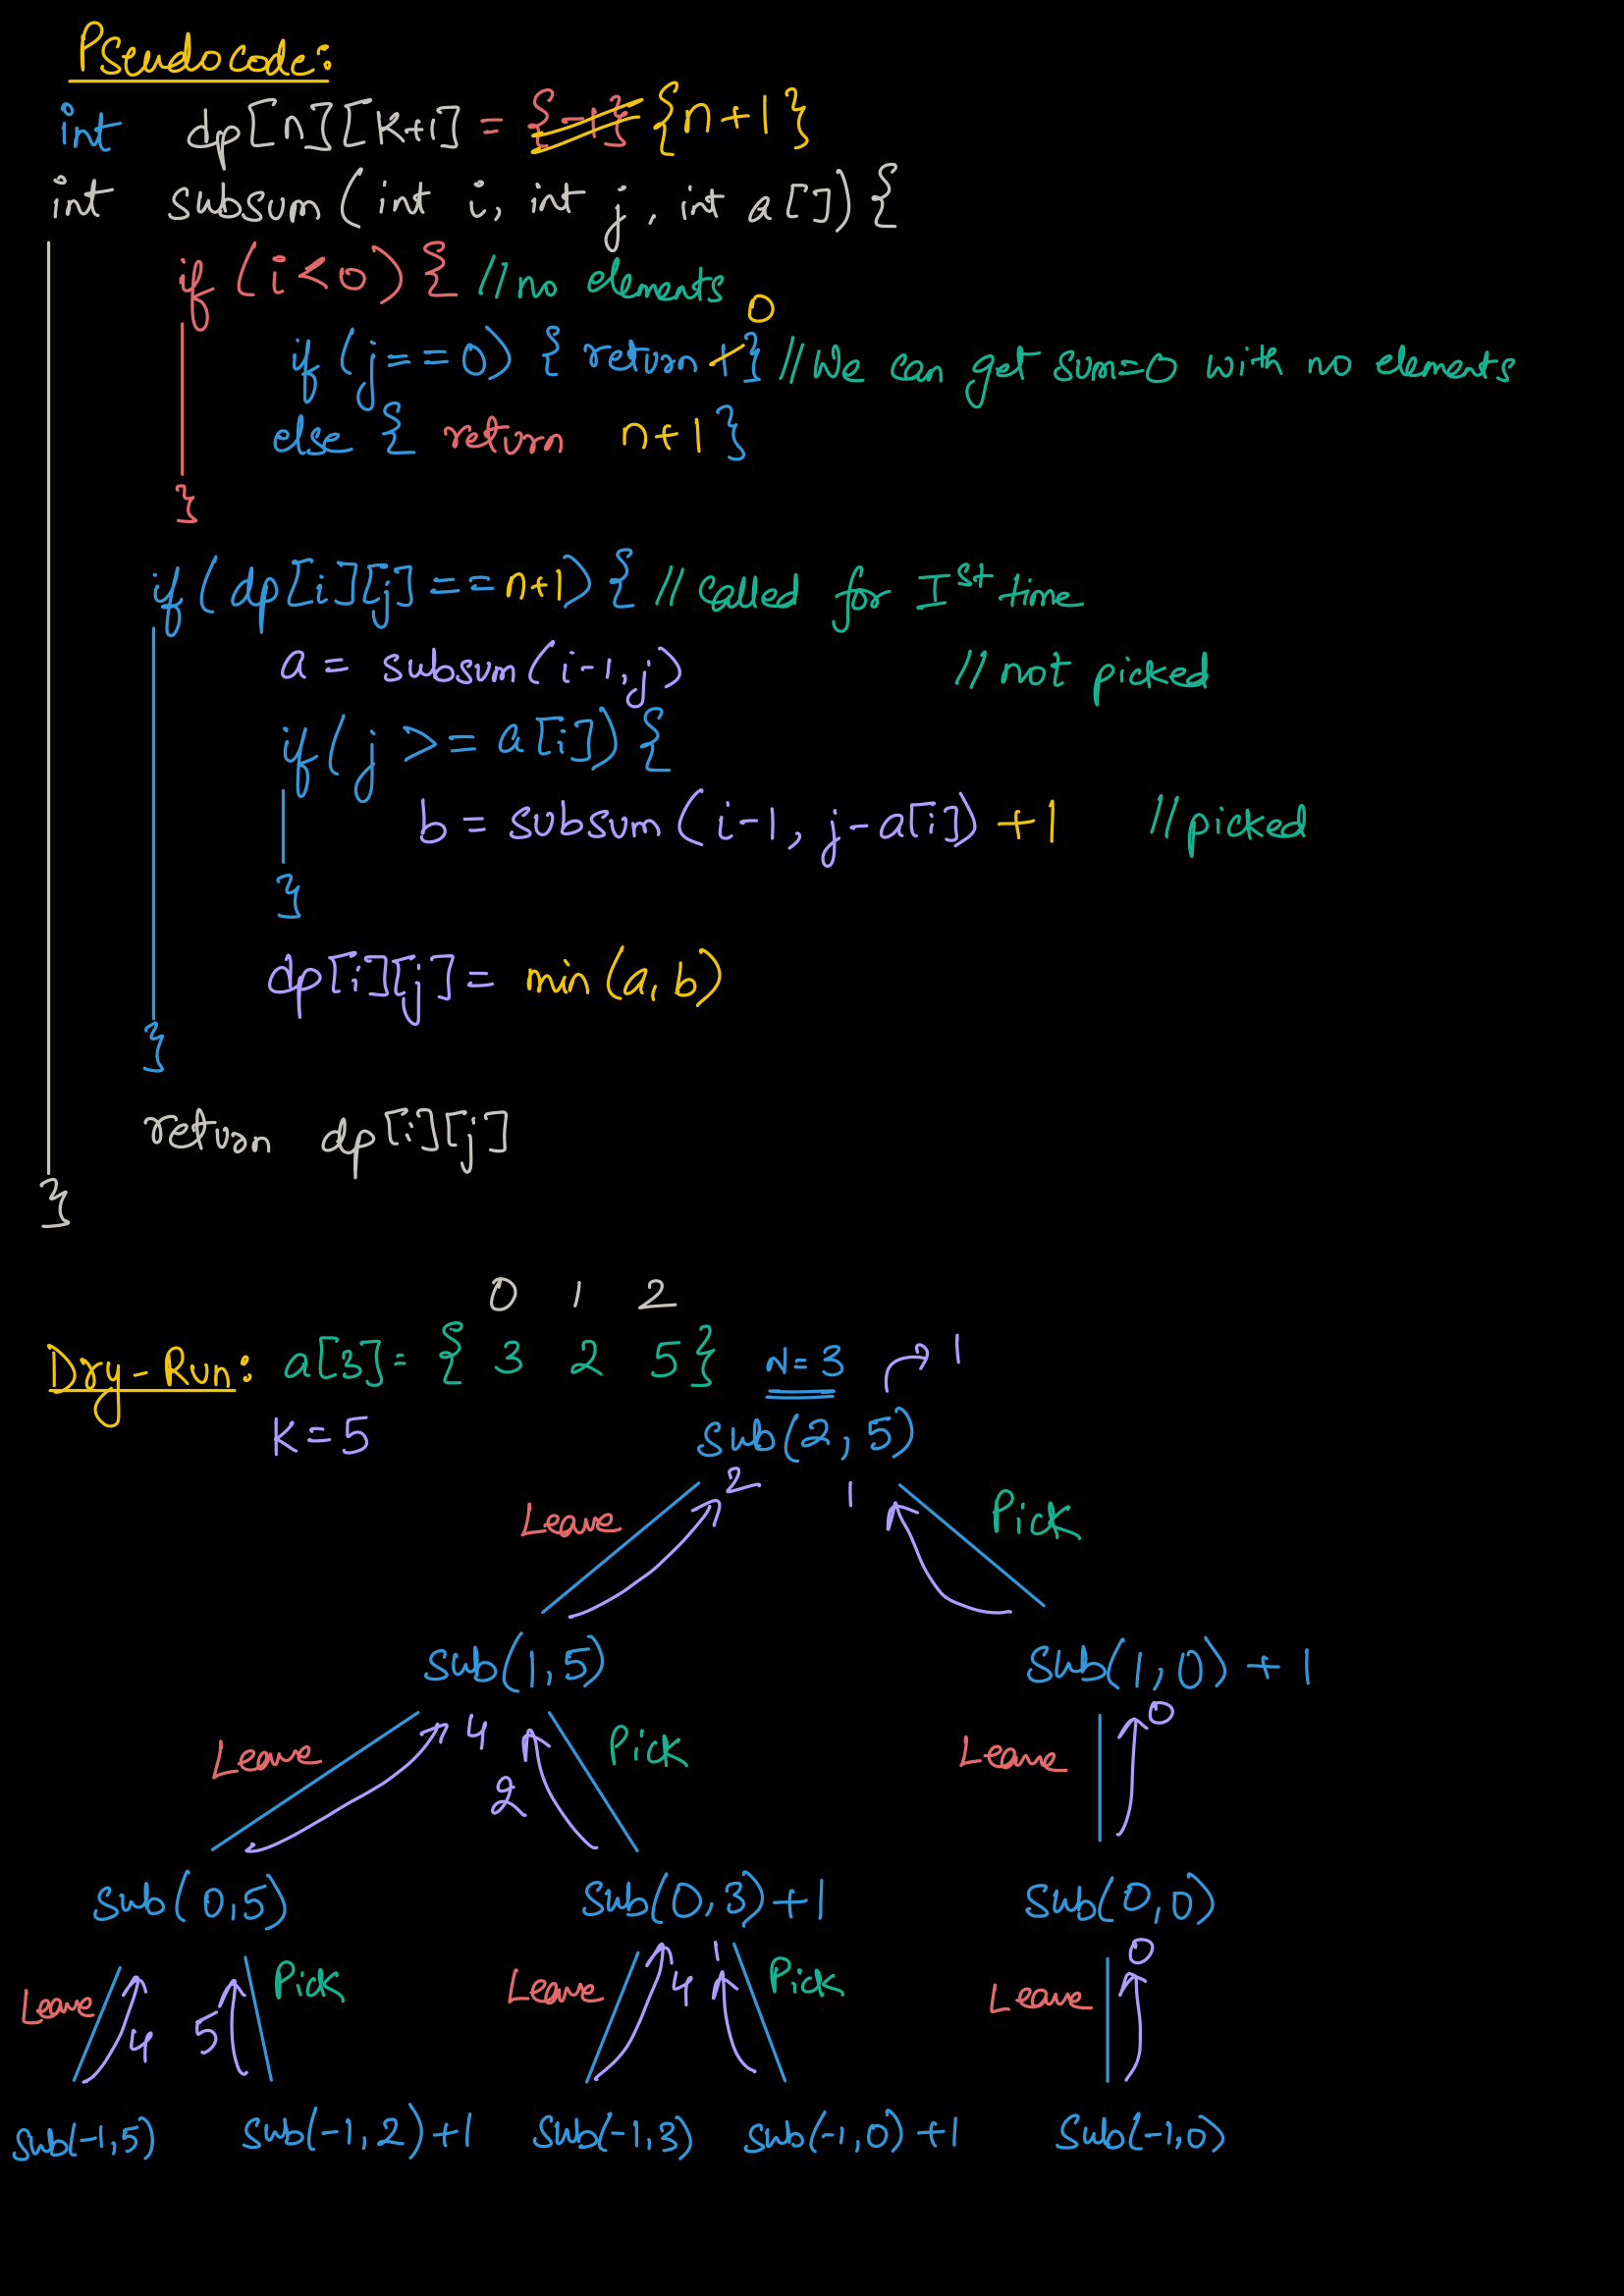 Pseudocode:
int dp[n][K+1] = {-1} {n+1}
int subsum(int i, int j, int a[]){
if (i<0){ //no elements
0
if (j==0) { return 1} //We can get sum=0 with no elements
else { return n+1}
}
if(dp[i][j]==n+1){ // called for Ist time
a = subsum(i-1,j) // not picked
if(j >= a[i]){
b = subsum(i-1, j-a[i]) +1 //picked
}
dp[i][j]= min(a,b)
}
return dp[i][j]
}
0 1 2
Dry-Run: a[3]= { 3 2 5} N=3 1
K=5 sub(2,5)
2 1
Leave Pick
sub(1,5) sub(1,0)+1
Leave 4 Pick Leave 0
2
sub(0,5) sub(0,3)+1 sub(0,0)
Leave 4 5 Pick Leave 4 1 Pick Leave 0
sub(-1,5) sub(-1,2)+1 sub(-1,3) sub(-1,0)+1 sub(-1,0)